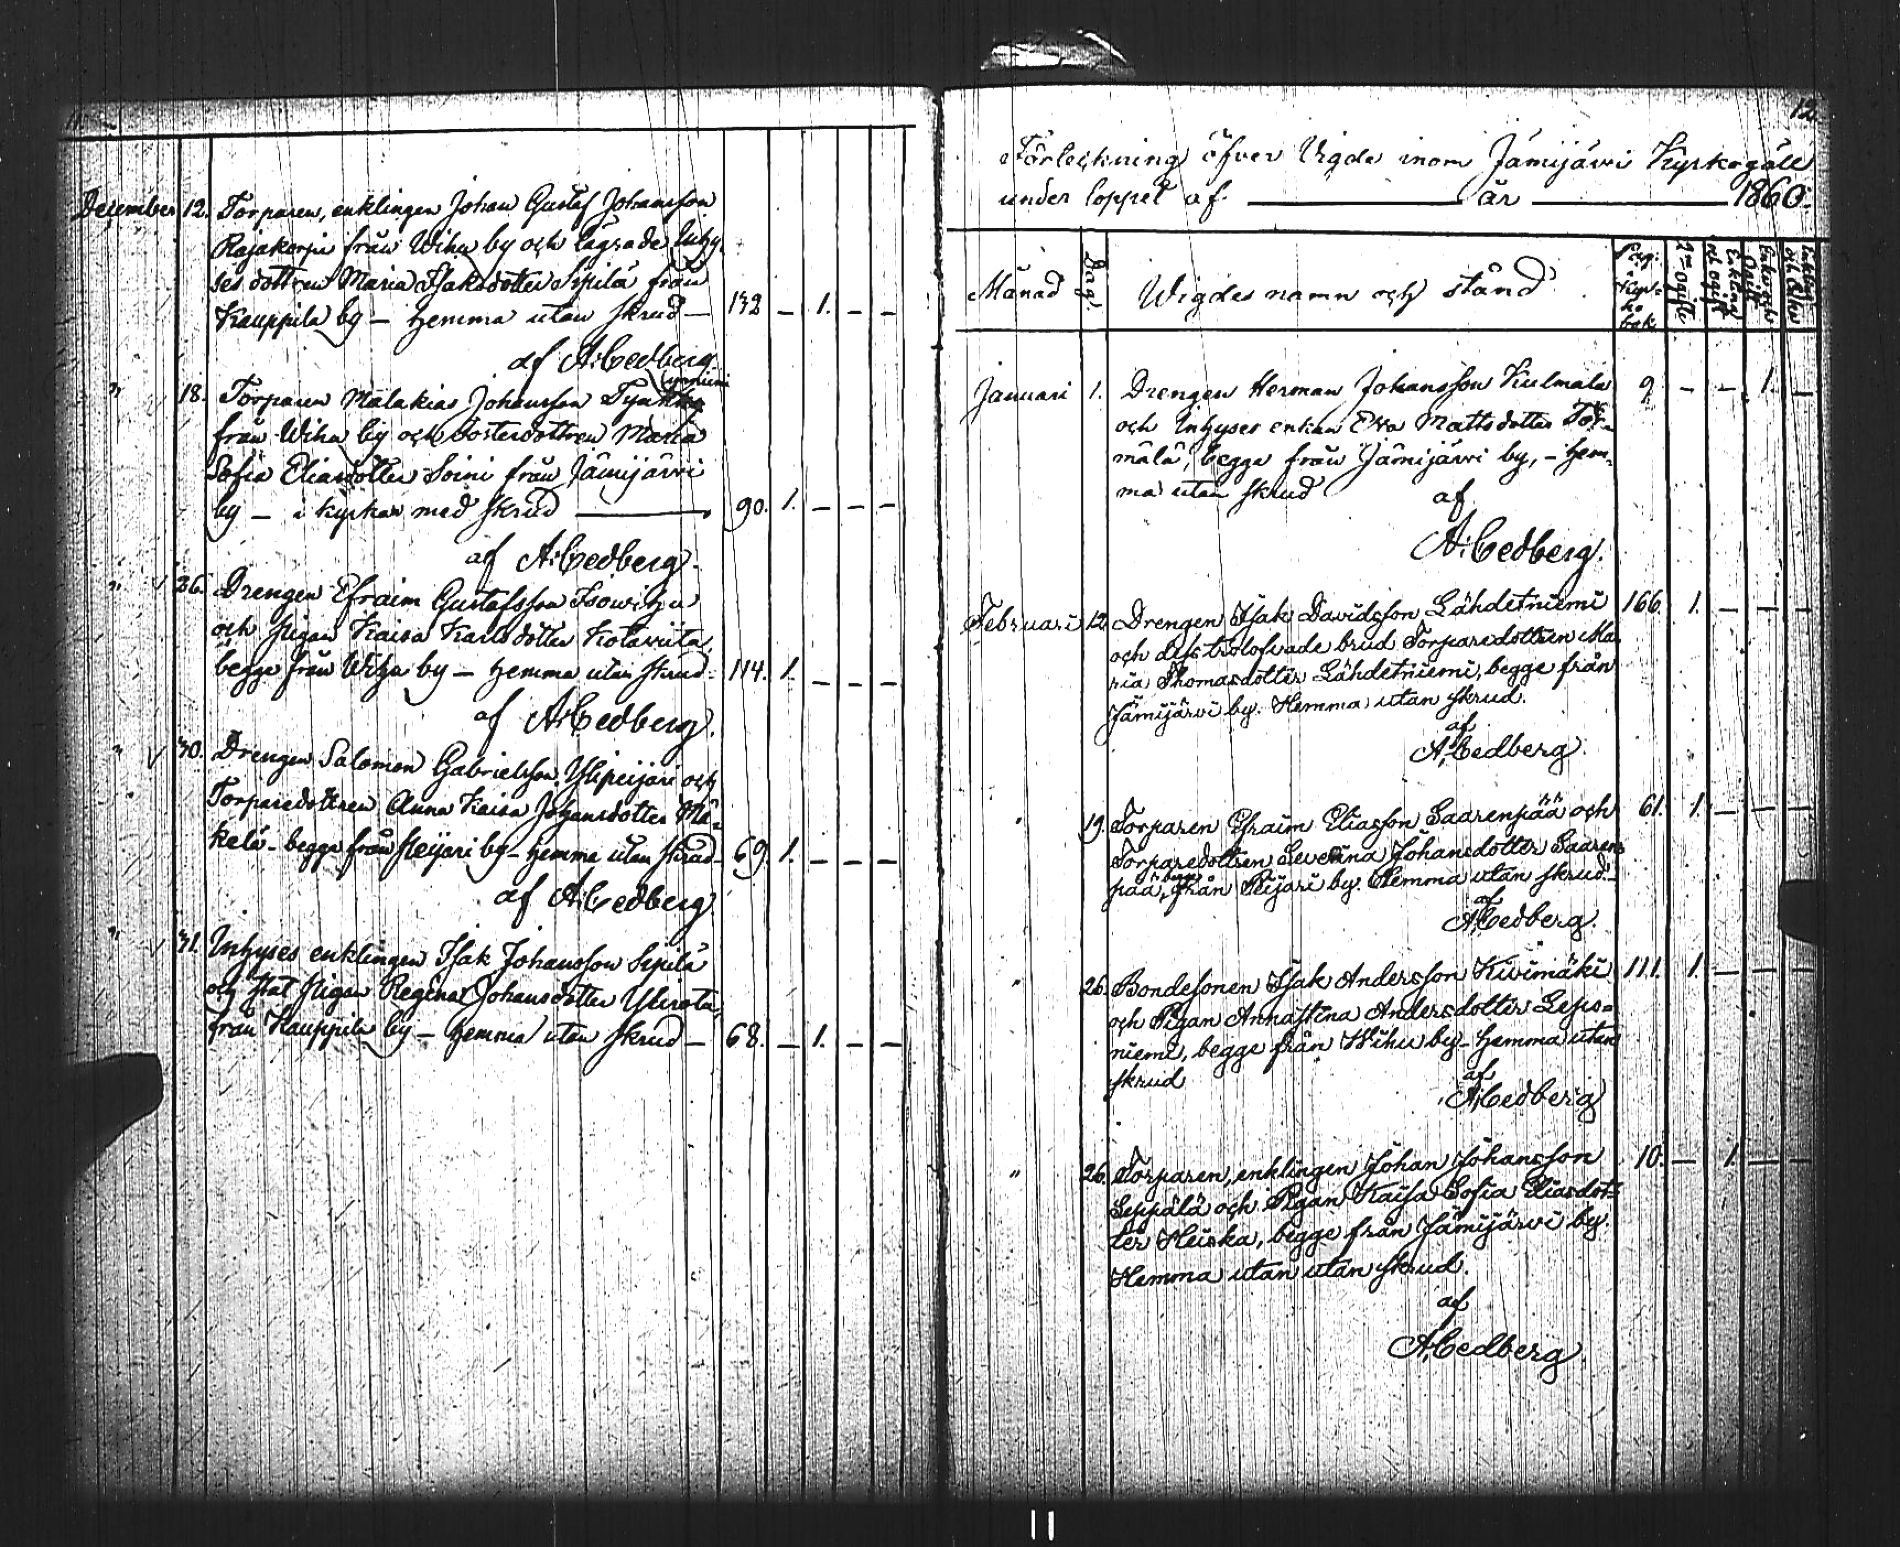 December 12. Torparen, enklingen Johan Gustaf Johansson
Rajakorpi från Wihu by och lägrade Inhy-
ses dottren Maria Isaksdotter Sipilä från
Kauppila by — hemma utan skrud — 132 — 1. — —
af A: Cedberg
" 18. Torparen Malakias Johansson
från Wihu by och Sosterdottren Maria
Sofia Eliasdotter Soini från Jämijärvi
by — i kyrkan med skrud — 90. 1. — — —
af A: Cedberg.
" 26. Drengen Efraim Gustafsson
och pigan Kaisa Karlsdotter
begge från Wihu by — hemma utan skrud - 114. 1. — — —
af A: Cedberg.
" 30. Drengen Salomon Gabrielsson Ylipeijari och
Torparedottren Anna Kaisa Johansdotter Mä-
kelä - begge från Peijari by - hemma utan skrud - 69 1. — — —
af A: Cedberg.
" 31. Inhyses enklingen Isak Johansson Sipilä
och pigan Regina Johansdotter
från Kauppila by — hemma utan skrud — 68. — 1. — —
12.
Förteckning öfver Vigde inom Jämijärvi Kyrkogäll
under loppet af — år — 1860.
Månad Dag. Wigdes namn och stånd Pag: i Kyrko bok. 2ne ogifte Enkling och ogift Enka och Ogift Enkling och Enka
Januari 1. Drengen Herman Johansson Kulmala 9 — — 1. —
och Inhyses enkan Eva Mattsdotter Tör-
mälä, begge från Jämijärvi by, — hem-
ma utan skrud af
A: Cedberg.
Februari 12. Drengen Isak Davidsson Lähdetniemi 166. 1. — — —
och dess trolofvade brud Torparedottren Ma-
ria Thomasdotter Lähdetniemi, begge från
Jämijärvi by. Hemma utan skrud.
af
A. Cedberg.
" 19. Torparen Efraim Eliasson Saarenpää och 61. 1. — — —
Torparedottren Severina Johansdotter Saaren-
pää, begge från Peijari by. Hemma utan skrud.
af
A. Cedberg.
" 26. Bondesonen Isak Andersson Kivimäki 111. 1. — — —
och Pigan Annastina Andersdotter Lepo-
niemi, begge från Wihu by - Hemma utan
skrud af
A. Cedberg
" 26. Torparen, enklingen Johan Johansson 10. — 1. — —
Seppälä och Pigan Kaisa Sofia Eliasdot-
ter Heiska, begge från Jämijärvi by.
Hemma utan utan skrud.
af
A. Cedberg
11